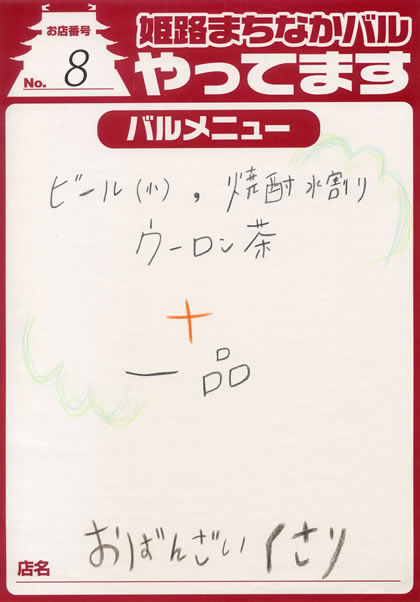 お店番号
No. 8
姫路まちなかバル
やってます
バルメニュー
ビール(小), 焼酎水割り
ウーロン茶
+
一品
店名 おばんざい くさり